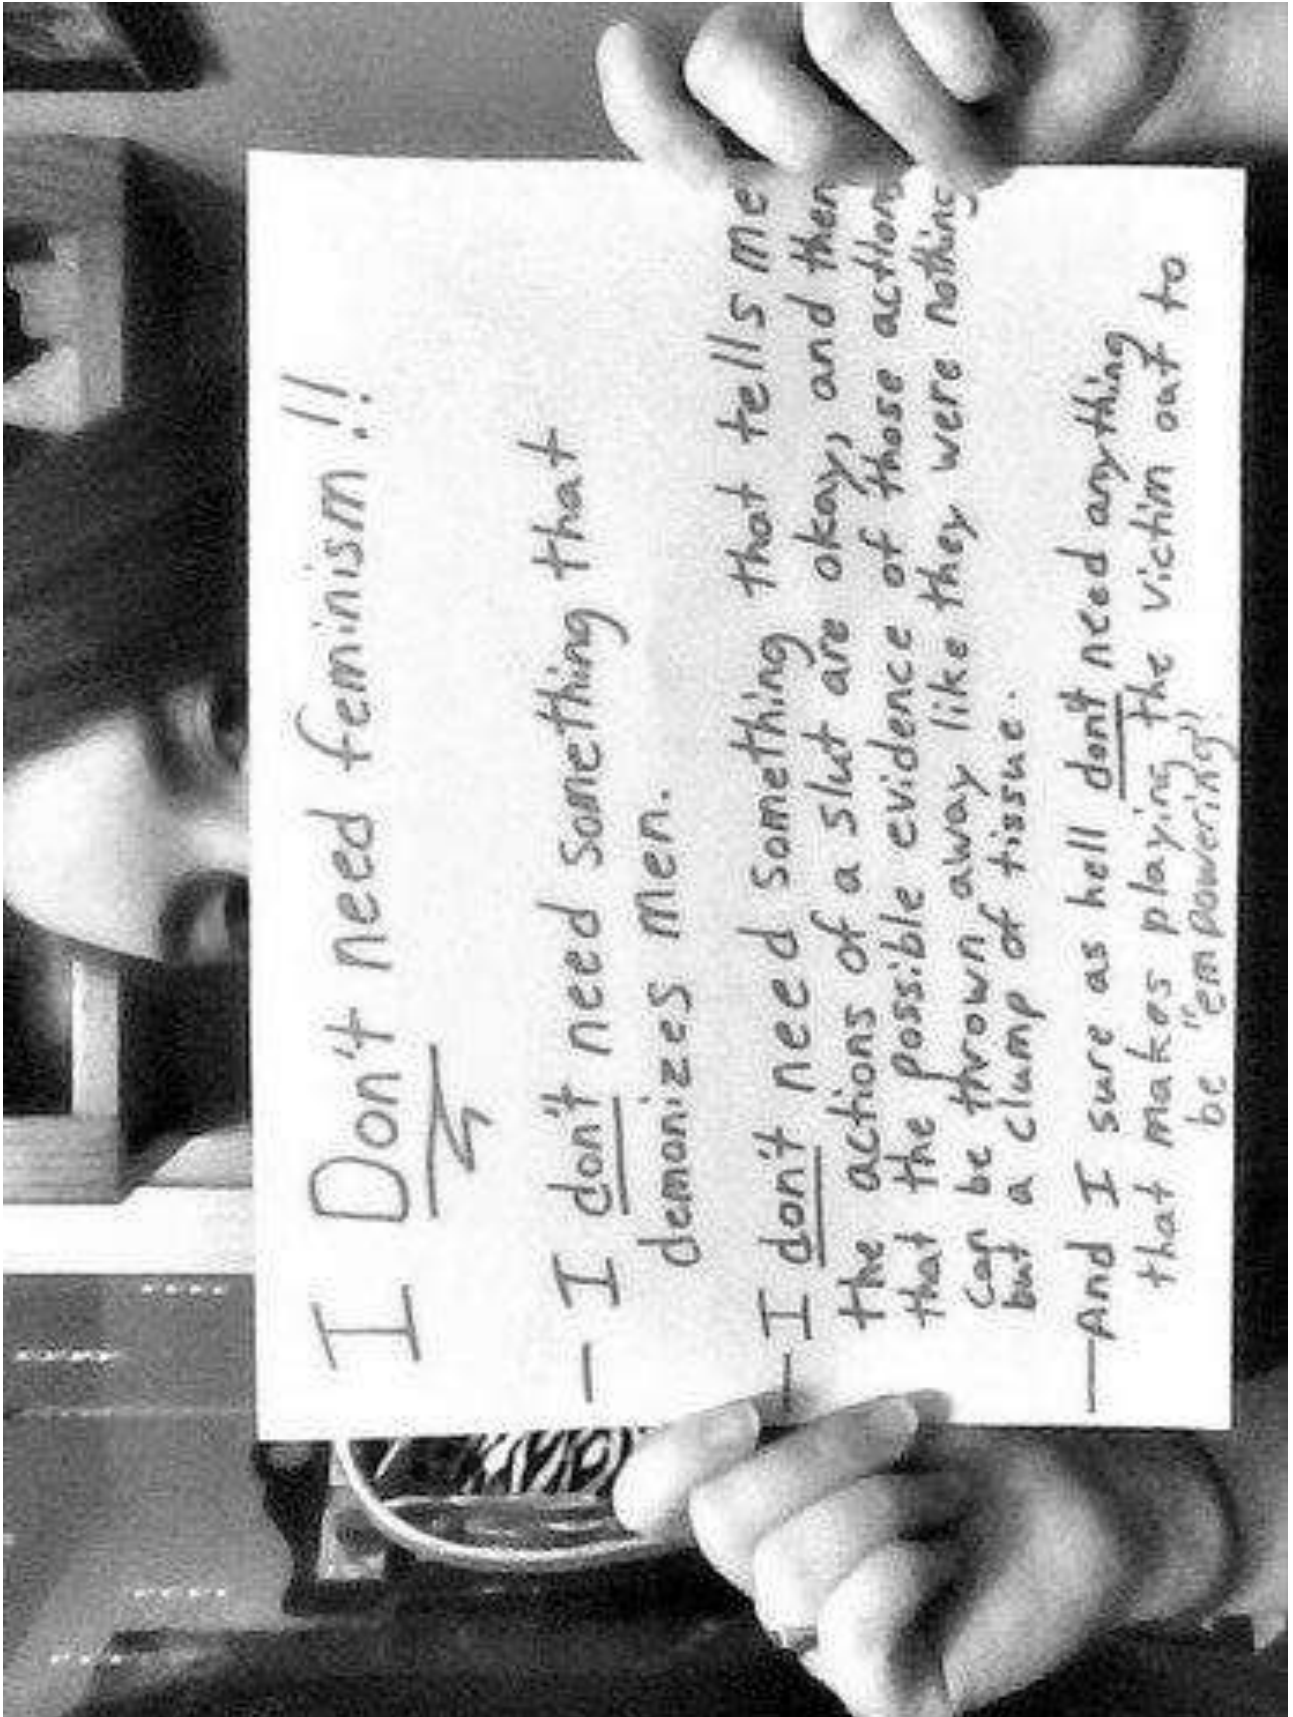 I Don't need feminism!!
— I don't need something that
demonizes men.
— I don't need something that tells me
the actions of a slut are okay, and then
that the possible evidence of those action
can be thrown away like they were nothing
but a clump of tissue.
— And I sure as hell don't need anything
that makes playing the victim out to
be "empowering"